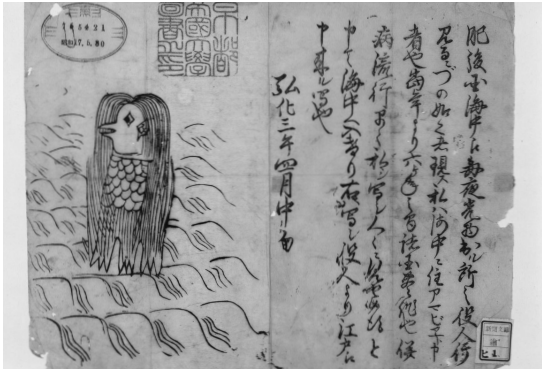 肥後国海中え毎夜光物出ル所之役人行
見るニづの如く者現ス私ハ海中ニ住アマビヱト申
者也當年より六ヶ年之間諸国豊作也併
病流行早々私ヲ写シ人々ニ見せ候得と
申て海中へ入けり右写シ役人より江戸え
申来ル写也
弘化三年四月中旬
京都
帝國大學
圖書之印